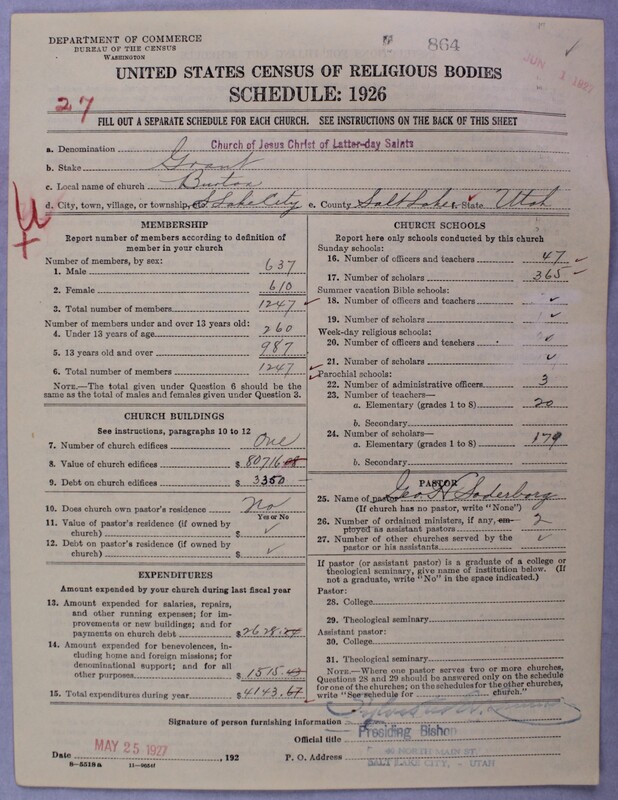 DEPARTMENT OF COMMERCE
BUREAU OF THE CENSUS
WASHINGTON
864
JUN 1 1927
UNITED STATES CENSUS OF RELIGIOUS BODIES
SCHEDULE: 1926
27
FILL OUT A SEPARATE SCHEDULE FOR EACH CHURCH. SEE INSTRUCTIONS ON THE BACK OF THIS SHEET
a. Denomination Church of Jesus Christ of Latter-day Saints
b. Stake Grant
c. Local name of church Burton
d. City, town, village, or township, etc. S. Lake City e. County Salt Lake f. State Utah
MEMBERSHIP
Report number of members according to definition of
member in your church
Number of members, by sex:
1. Male 637
2. Female 610
3. Total number of members 1247
Number of members under and over 13 years old:
4. Under 13 years of age 260
5. 13 years old and over 987
6. Total number of members 1247
NOTE.—The total given under Question 6 should be the
same as the total of males and females given under Question 3.
CHURCH BUILDINGS
See instructions, paragraphs 10 to 12
7. Number of church edifices One
8. Value of church edifices $ 80716
9. Debt on church edifices $ 3350
10. Does church own pastor's residence No
Yes or No
11. Value of pastor's residence (if owned by
church) $
12. Debt on pastor's residence (if owned by
church) $
EXPENDITURES
Amount expended by your church during last fiscal year
13. Amount expended for salaries, repairs,
and other running expenses; for im-
provements or new buildings; and for
payments on church debt $ 2628.
14. Amount expended for benevolences, in-
cluding home and foreign missions; for
denominational support; and for all
other purposes $ 1515
15. Total expenditures during year $ 4143.67
CHURCH SCHOOLS
Report here only schools conducted by this church
Sunday schools:
16. Number of officers and teachers 47
17. Number of scholars 365
Summer vacation Bible schools:
18. Number of officers and teachers
19. Number of scholars
Week-day religious schools:
20. Number of officers and teachers
21. Number of scholars
Parochial schools:
22. Number of administrative officers 3
23. Number of teachers—
a. Elementary (grades 1 to 8) 20
b. Secondary
24. Number of scholars—
a. Elementary (grades 1 to 8) 179
b. Secondary
PASTOR
25. Name of pastor Geo H Soderborg
(If church has no pastor, write "None")
26. Number of ordained ministers, if any, em-
ployed as assistant pastors 2
27. Number of other churches served by the
pastor or his assistants
If pastor (or assistant pastor) is a graduate of a college or
theological seminary, give name of institution below. (If
not a graduate, write "No" in the space indicated.)
Pastor:
28. College
29. Theological seminary
Assistant pastor:
30. College
31. Theological seminary
NOTE.—Where one pastor serves two or more churches,
Questions 28 and 29 should be answered only on the schedule
for one of the churches; on the schedules for the other churches,
write "See schedule for church."
Signature of person furnishing information
Official title Presiding Bishop
Date MAY 25 1927, 192 P. O. Address 40 NORTH MAIN ST.
SALT LAKE CITY, - UTAH
8—5518a